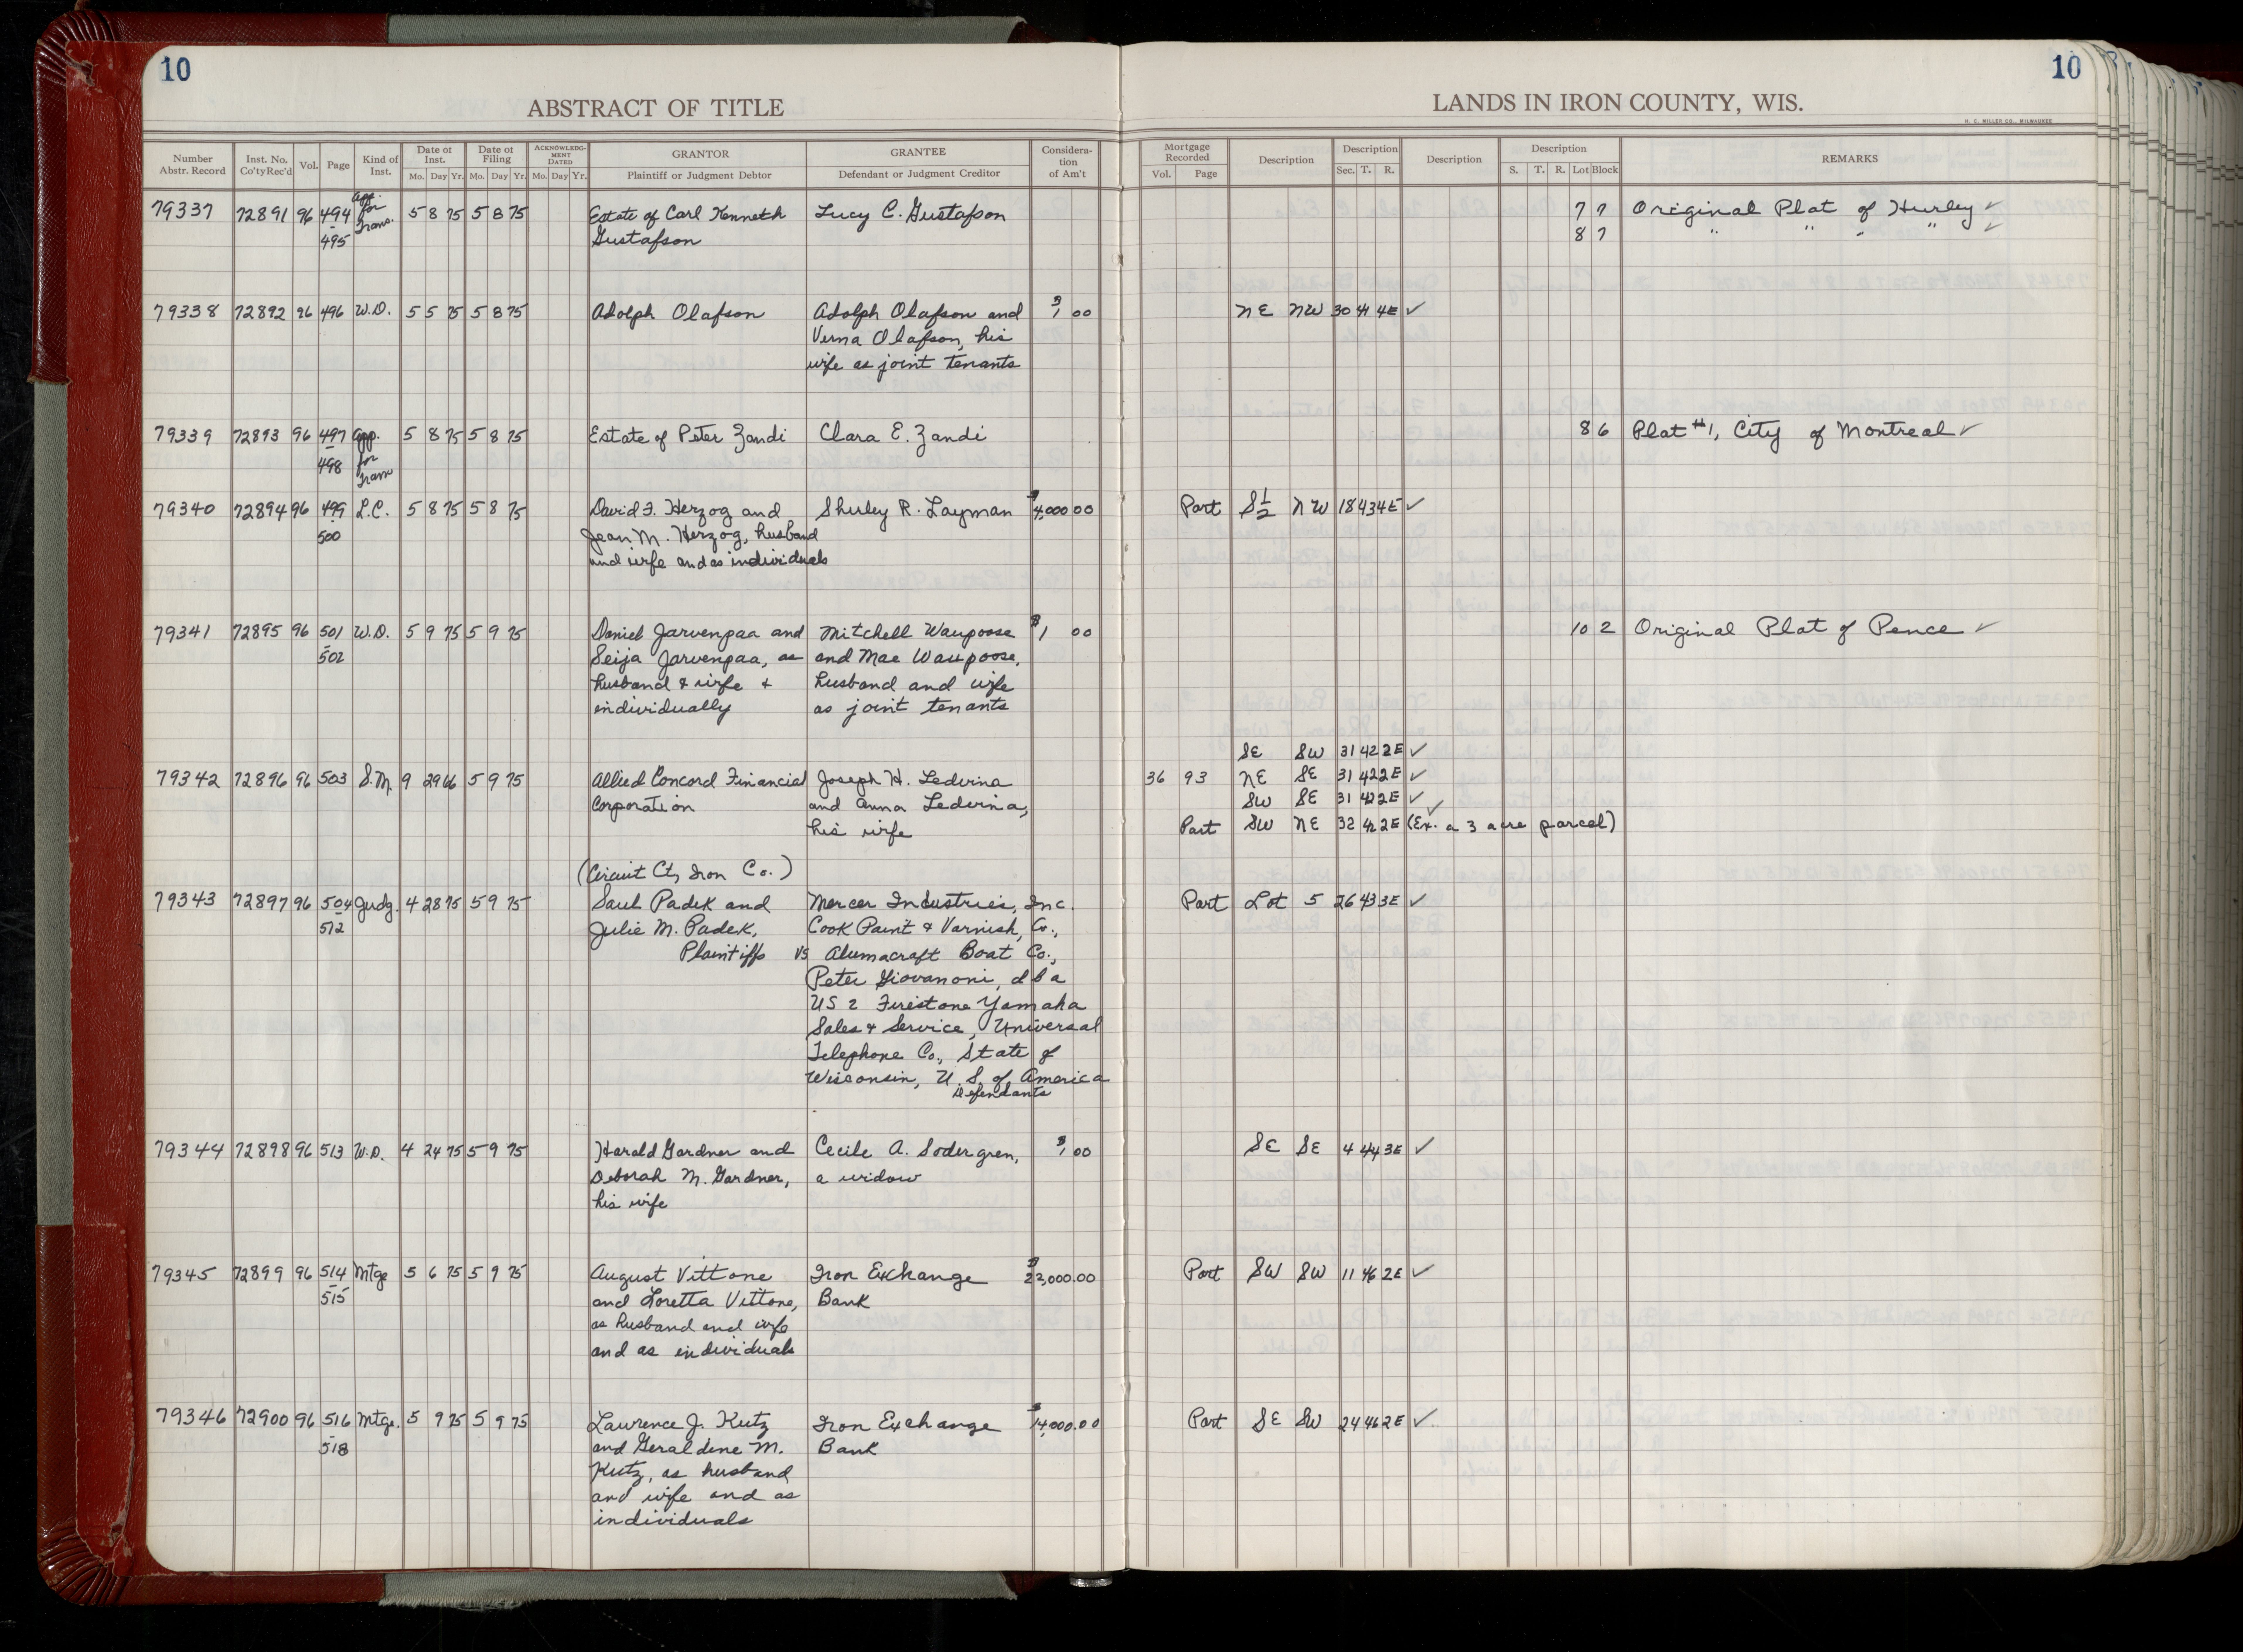 10
10
ABSTRACT OF TITLE
LANDS IN IRON COUNTY, WIS.
H. C. MILLER CO., MILWAUKEE
Number Abstr. Record | Inst. No. Co'ty Rec'd | Vol. | Page | Kind of Inst. | Date of Inst. Mo. Day Yr. | Date of Filing Mo. Day Yr. | ACKNOWLEDGMENT DATED Mo. Day Yr. | GRANTOR Plaintiff or Judgment Debtor | GRANTEE Defendant or Judgment Creditor | Consideration of Am't | Mortgage Recorded Vol. Page | Description | Description Sec. T. R. | Description | Description S. T. R. Lot Block | REMARKS
79337 72891 96 494 App. for Trans. 5 8 75 5 8 75 Estate of Carl Kenneth Lucy C. Gustafson 7 7 Original Plat of Hurley ✓
495 Gustafson 8 7 " " " " ✓
79338 72892 96 496 W.D. 5 5 75 5 8 75 Adolph Olafson Adolph Olafson and $1 00 NE NW 30 41 4E ✓
Verna Olafson, his
wife as joint tenants
79339 72893 96 497 App. 5 8 75 5 8 75 Estate of Peter Zandi Clara E. Zandi 8 6 Plat #1, City of Montreal ✓
498 for
Trans
79340 72894 96 499 L.C. 5 8 75 5 8 75 David F. Herzog and Shirley R. Layman $4,000 00 Part S 1/2 NW 18 43 4E ✓
500 Jean M. Herzog, husband
and wife and as individuals
79341 72895 96 501 W.D. 5 9 75 5 9 75 Daniel Jarvenpaa and Mitchell Waupoose $1 00 10 2 Original Plat of Pence ✓
502 Seija Jarvenpaa, as and Mae Waupoose,
husband & wife & husband and wife
individually as joint tenants
SE SW 31 42 2E ✓
79342 72896 96 503 S.M. 9 29 66 5 9 75 Allied Concord Financial Joseph H. Ledvina 36 93 NE SE 31 42 2E ✓
Corporation and Anna Ledvina, SW SE 31 42 2E ✓
his wife Part SW NE 32 42 2E (Ex. a 3 acre parcel) ✓
(Circuit Ct, Iron Co.)
79343 72897 96 504 Judg. 4 28 75 5 9 75 Saul Padek and Mercer Industries, Inc. Part Lot 5 26 43 3E ✓
512 Julie M. Padek, Cook Paint & Varnish, Co.,
Plaintiffs VS Alumacraft Boat Co.,
Peter Giovanoni, dba
US 2 Firestone Yamaha
Sales & Service, Universal
Telephone Co., State of
Wisconsin, U.S. of America
Defendants
79344 72898 96 513 W.D. 4 24 75 5 9 75 Harald Gardner and Cecile A. Sodergren, $1 00 SE SE 4 44 3E ✓
Deborah M. Gardner, a widow
his wife
79345 72899 96 514 Mtge 5 6 75 5 9 75 August Vittone Iron Exchange $23,000.00 Part SW SW 11 46 2E ✓
515 and Loretta Vittone, Bank
as husband and wife
and as individuals
79346 72900 96 516 Mtge. 5 9 75 5 9 75 Lawrence J. Kutz Iron Exchange $14,000.00 Part SE SW 24 46 2E ✓
518 and Geraldine M. Bank
Kutz, as husband
and wife and as
individuals